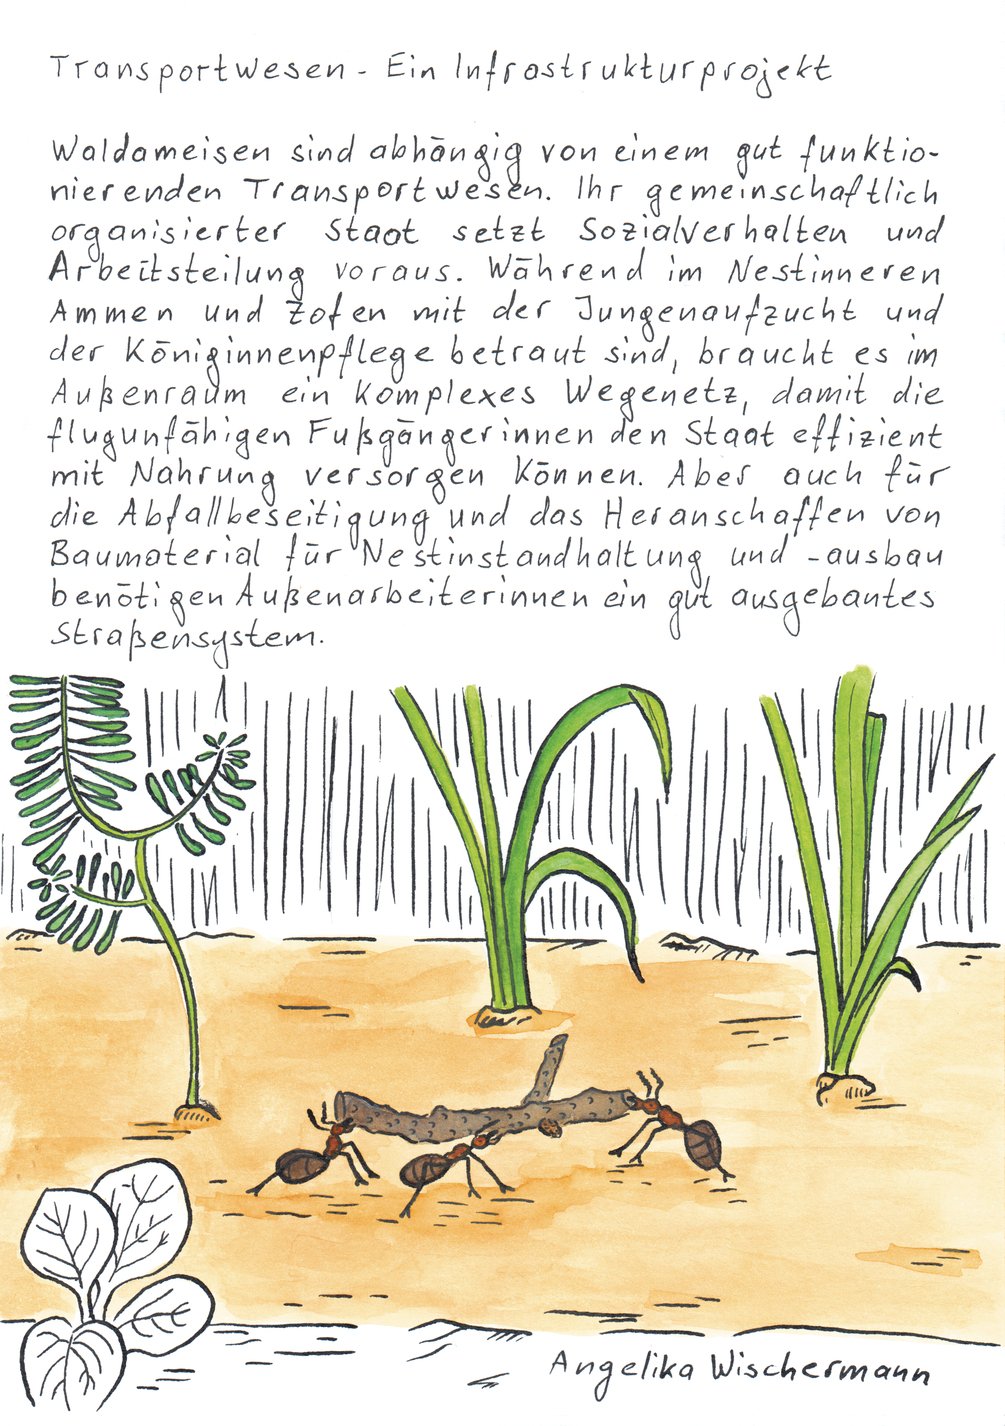 Transportwesen - Ein Infrastrukturprojekt
Waldameisen sind abhängig von einem gut funktio-
nierenden Transportwesen. Ihr gemeinschaftlich
organisierter Staat setzt Sozialverhalten und
Arbeitsteilung voraus. Während im Nestinneren
Ammen und Zofen mit der Jungenaufzucht und
der Königinnenpflege betraut sind, braucht es im
Außenraum ein komplexes Wegenetz, damit die
flugunfähigen Fußgängerinnen den Staat effizient
mit Nahrung versorgen können. Aber auch für
die Abfallbeseitigung und das Heranschaffen von
Baumaterial für Nestinstandhaltung und -ausbau
benötigen Außenarbeiterinnen ein gut ausgebautes
Straßensystem.
Angelika Wischermann